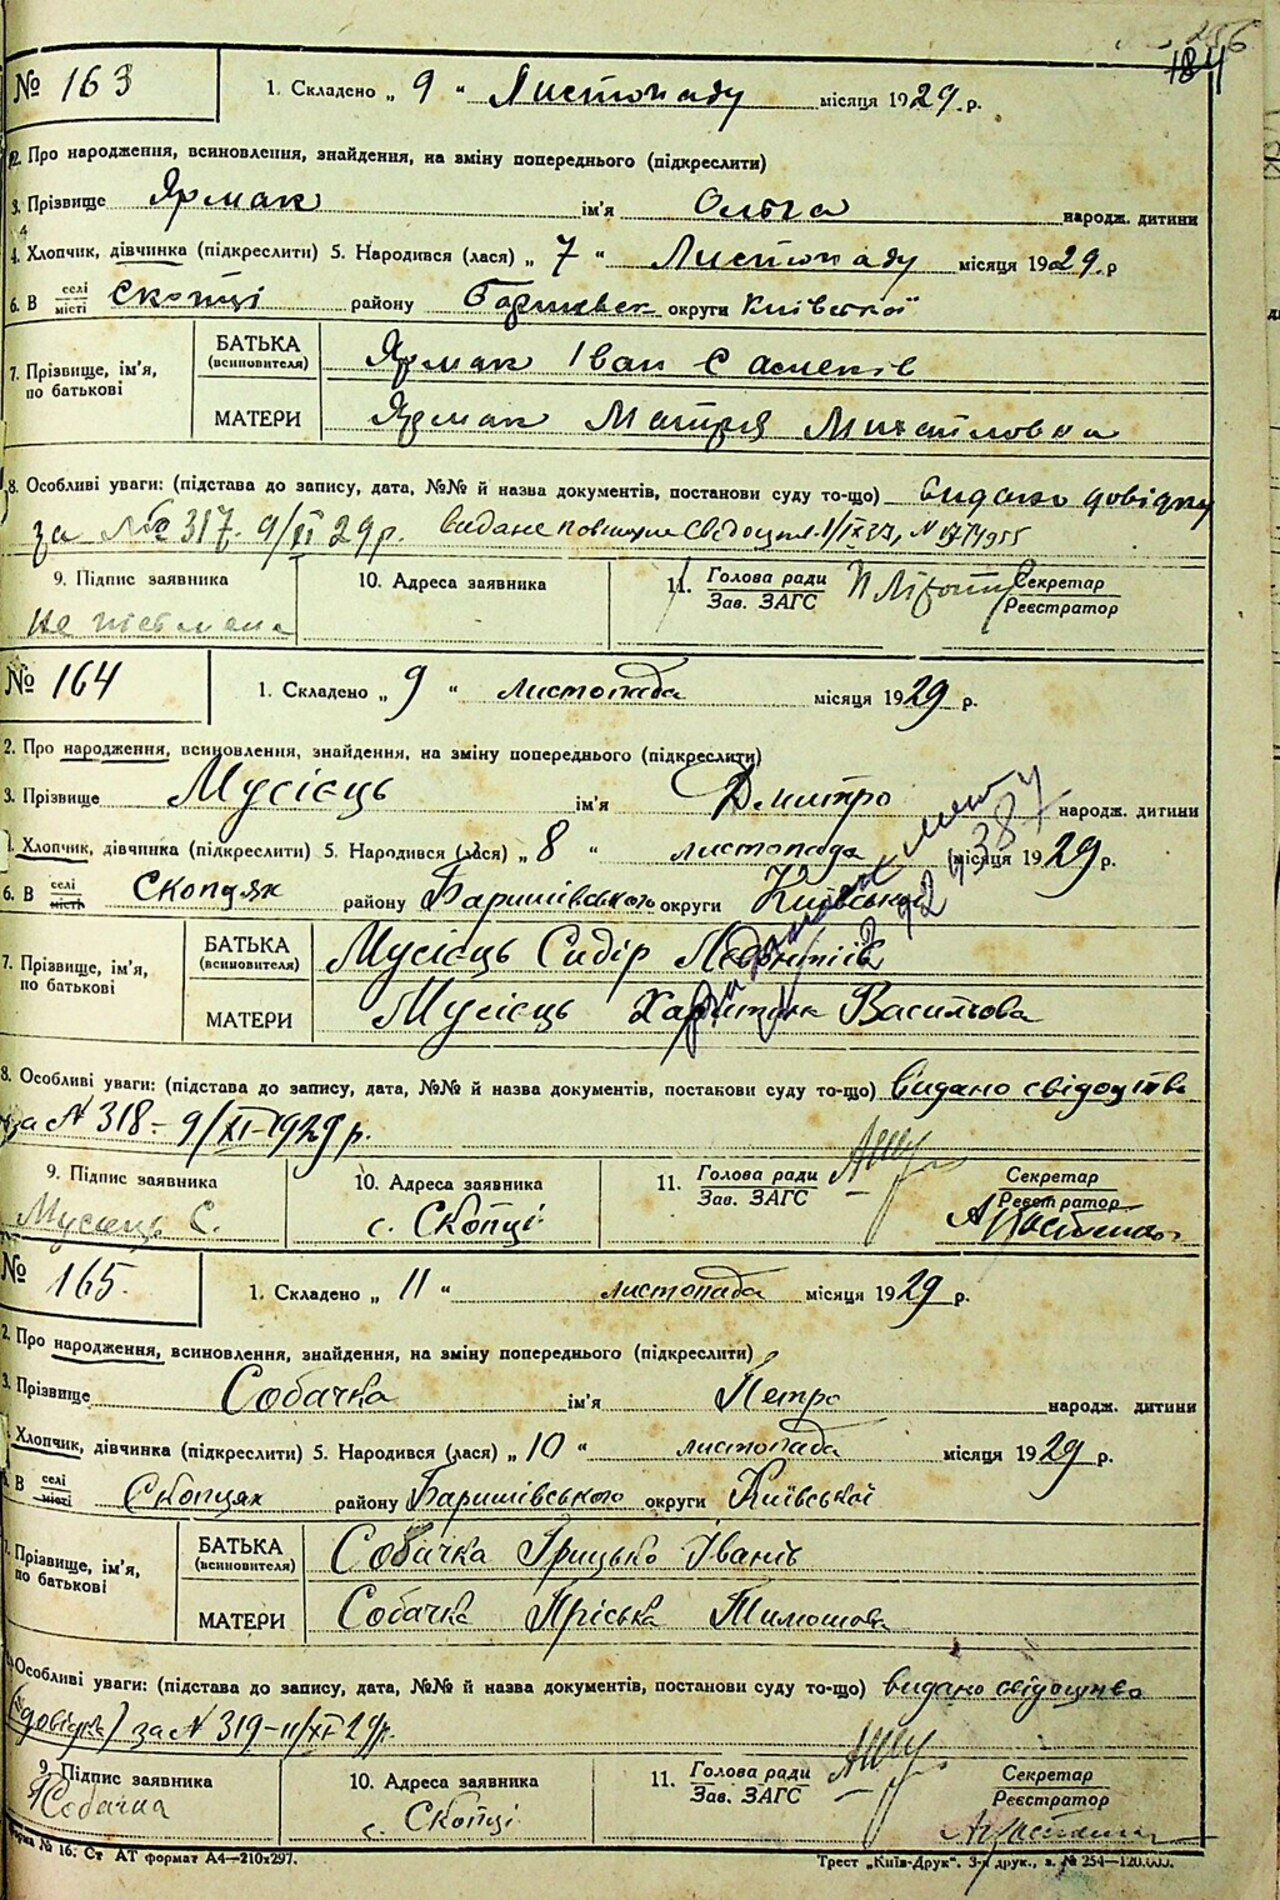 256
184
№ 163 1. Складено „ 9 “ Листопаду місяця 1929 р.
2. Про народження, всиновлення, знайдення, на зміну попереднього (підкреслити)
3. Прізвище Ярмак ім'я Ольга народж. дитини
4. Хлопчик, дівчинка (підкреслити) 5. Народився (лася) „ 7 “ Листопаду місяця 1929 р
6. В селі місті Скопці району Баришевск округи Київської
7. Прізвище, ім'я, по батькові БАТЬКА (всиновителя) Ярмак Іван
МАТЕРИ Ярмак Мотря Михайловна
8. Особливі уваги: (підстава до запису, дата, №№ й назва документів, постанови суду то-що) видано довідку
за № 317. 9/XI 29 р. видане повторне
9. Підпис заявника 10. Адреса заявника 11. Голова ради Зав. ЗАГС Секретар Реєстратор
не пісьмена
№ 164 1. Складено „ 9 “ листопада місяця 1929 р.
2. Про народження, всиновлення, знайдення, на зміну попереднього (підкреслити)
3. Прізвище Мусієць ім'я Дмитро народж. дитини
Хлопчик, дівчинка (підкреслити) 5. Народився (лася) „ 8 “ листопада місяця 1929 р.
6. В селі місті Скопцях району Баришівського округи Київської
7. Прізвище, ім'я, по батькові БАТЬКА (всиновителя) Мусієць Сидір Леонтіїв
МАТЕРИ Мусієць Харитина Васильова
8. Особливі уваги: (підстава до запису, дата, №№ й назва документів, постанови суду то-що) видано свідоцтво
за № 318 - 9/XI-1929 р.
9. Підпис заявника 10. Адреса заявника 11. Голова ради Зав. ЗАГС Секретар Реєстратор
Мусієць С. с. Скопці
№ 165. 1. Складено „ 11 “ листопада місяця 1929 р.
2. Про народження, всиновлення, знайдення, на зміну попереднього (підкреслити)
3. Прізвище Собачка ім'я Петро народж. дитини
Хлопчик, дівчинка (підкреслити) 5. Народився (лася) „ 10 “ листопада місяця 1929 р.
В селі місті Скопцях району Баришівського округи Київської
Прізвище, ім'я, по батькові БАТЬКА (всиновителя) Собачка Грицько Іванів
МАТЕРИ Собачка Пріська Тимошова
Особливі уваги: (підстава до запису, дата, №№ й назва документів, постанови суду то-що) видано свідоцтво
(довідка) за № 319-11/XI 29 р.
9. Підпис заявника 10. Адреса заявника 11. Голова ради Зав. ЗАГС Секретар Реєстратор
Собачка с. Скопці
№ 16. Ст АТ формат А4—210х297. Трест „Київ-Друк“. 3-я друк., з. № 254—120.000.